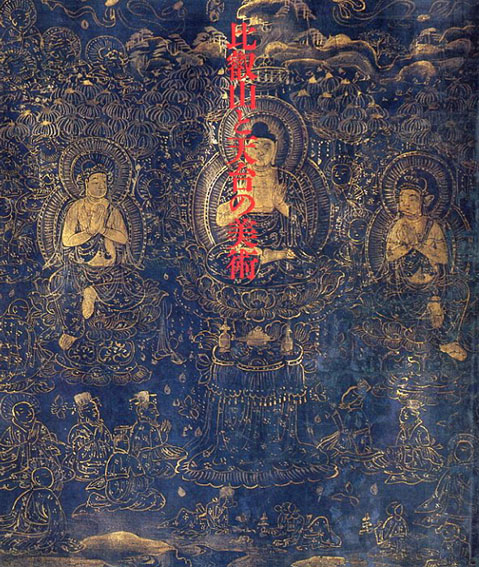 比叡山と天台の美術